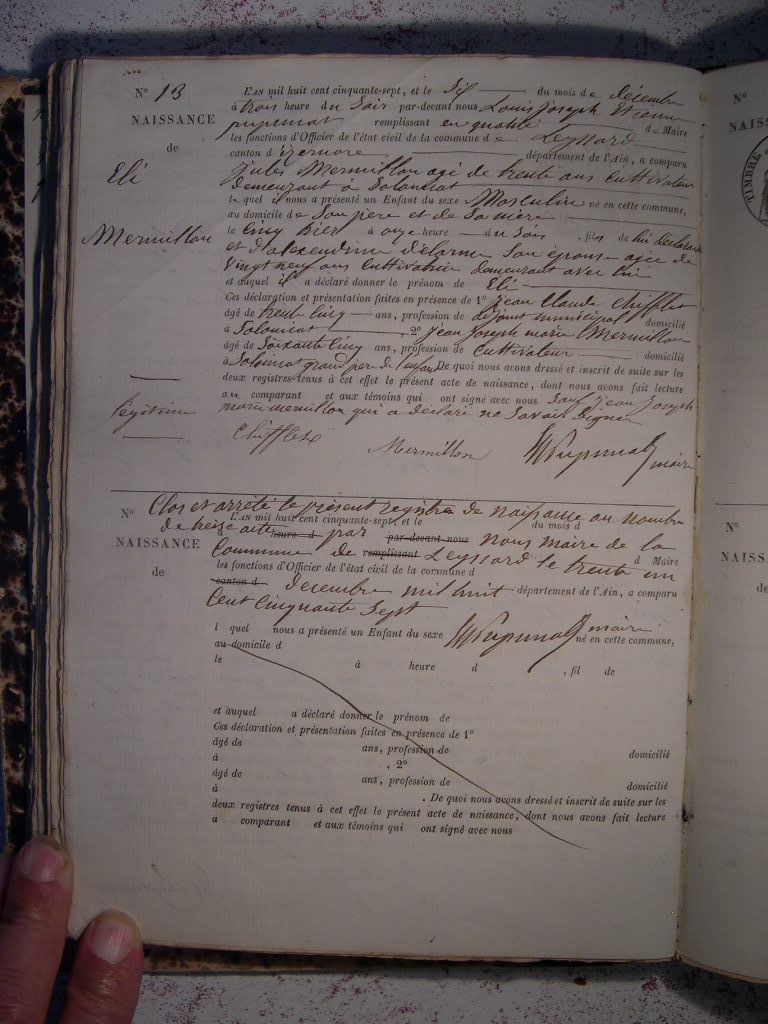 N° 13
NAISSANCE
de
Eli
Mermillon
légitime
L'AN mil huit cent cinquante-sept, et le Six du mois de décembre
à trois heure du Soir par-devant nous Louis Joseph Etienne
pupunat remplissant en qualité du Maire
les fonctions d'Officier de l'état civil de la commune de Leyssard
canton d'izernore département de l'Ain, a comparu
Jules Mermillon agé de trente ans Cultivateur
demeurant à Solomiat
le quel il nous a présenté un Enfant du sexe Masculin né en cette commune,
au domicile de Son père et de Sa mère
le Cinq hier à onze heure du Soir, fils de lui déclarant
et d'alexendrine delorme Son épouse agée de
vingt neuf ans Cultivatrice demeurant avec lui
et auquel il a déclaré donner le prénom de Eli
Ces déclaration et présentation faites en présence de 1° Jean Claude Chifflet
âgé de trente Cinq ans, profession de adjoint municipal domicilié
à Solomiat, 2° Jean Joseph marie Mermillon
âgé de Soixante Cinq ans, profession de Cultivateur domicilié
à Solomiat grand père de l'enfant De quoi nous avons dressé et inscrit de suite sur les
deux registres tenus à cet effet le présent acte de naissance, dont nous avons fait lecture
au comparant et aux témoins qui ont signé avec nous Sauf Jean Joseph
marie mermillon qui a déclaré ne Savoir Signer
Chifflet Mermillon Pupunat maire
N°
NAISSANCE
de
Clos et arrêté le présent registre de naissance au nombre
L'AN mil huit cent cinquante-sept, et le du mois d
de treize acte heure d par par-devant nous nous maire de la
Commune de remplissant Leyssard le trente un d Maire
les fonctions d'Officier de l'état civil de la commune d
canton d décembre mil huit département de l'Ain, a comparu
Cent Cinquante Sept
l quel nous a présenté un Enfant du sexe Pupunat maire né en cette commune,
au domicile d
le à heure d , fil de
et auquel a déclaré donner le prénom de
Ces déclaration et présentation faites en présence de 1°
âgé de ans, profession de domicilié
à , 2°
âgé de ans, profession de domicilié
à . De quoi nous avons dressé et inscrit de suite sur les
deux registres tenus à cet effet le présent acte de naissance, dont nous avons fait lecture
a comparant et aux témoins qui ont signé avec nous
N°
NAISS
TIMBRE
N°
NAISS
de